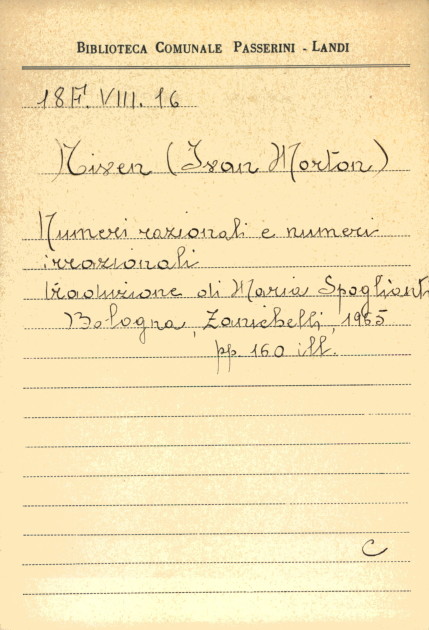 BIBLIOTECA COMUNALE PASSERINI - LANDI
18F. VIII. 16
Niven (Ivan Morton)
Numeri razionali e numeri
irrazionali
traduzione di Maria Spoglianti
Bologna, Zanichelli, 1965
pp. 160 ill.
C